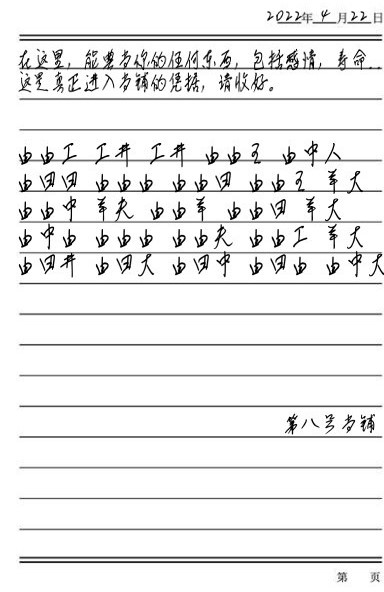 2022年4月22日
在这里，能典当你的任何东西，包括感情，寿命..
这是真正进入当铺的凭据，请收好。
由由工 工井 工井 由由王 由中人
由田田 由由由 由由田 由由王 羊大
由由中 羊夫 由由羊 由由田 羊大
由中由 由由由 由由夫 由由工 羊大
由田井 由田大 由田中 由田由 由中大
第八号当铺
第 页